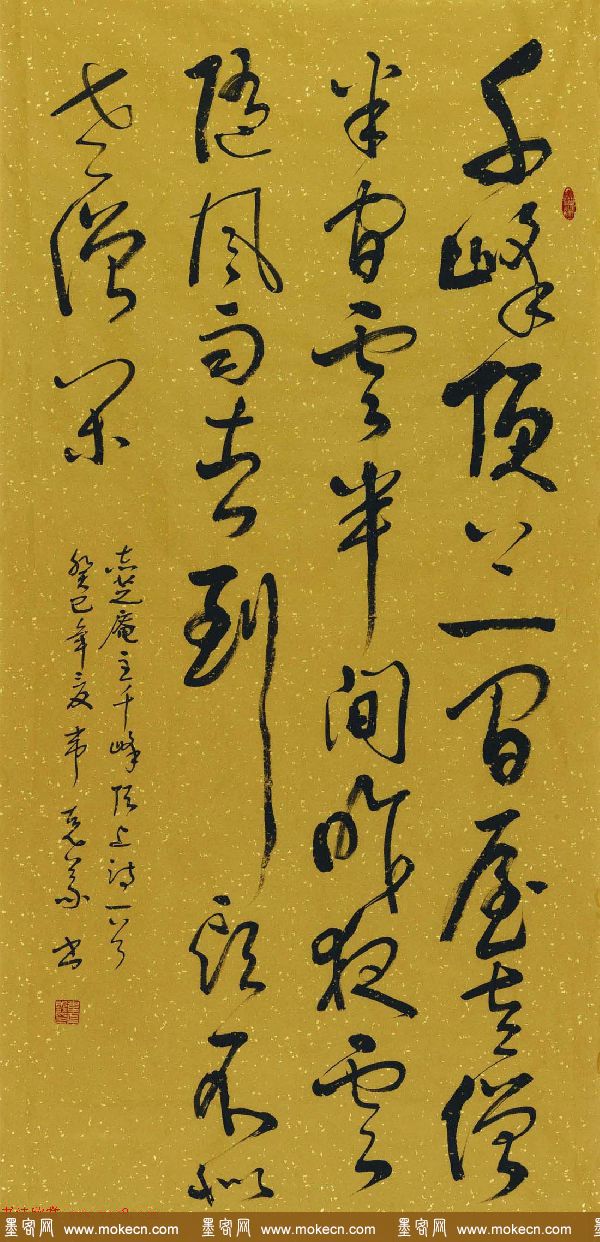 千峰頂上一間屋老僧
半間雲半間昨夜雲
隨風雨去到頭不似
老僧閑
志芝庵主千峰頂上詩一首
癸巳年夏韋克義書
墨客网 www.mokecn.com 墨客网 www.mokecn.com 墨客网 www.mokecn.com